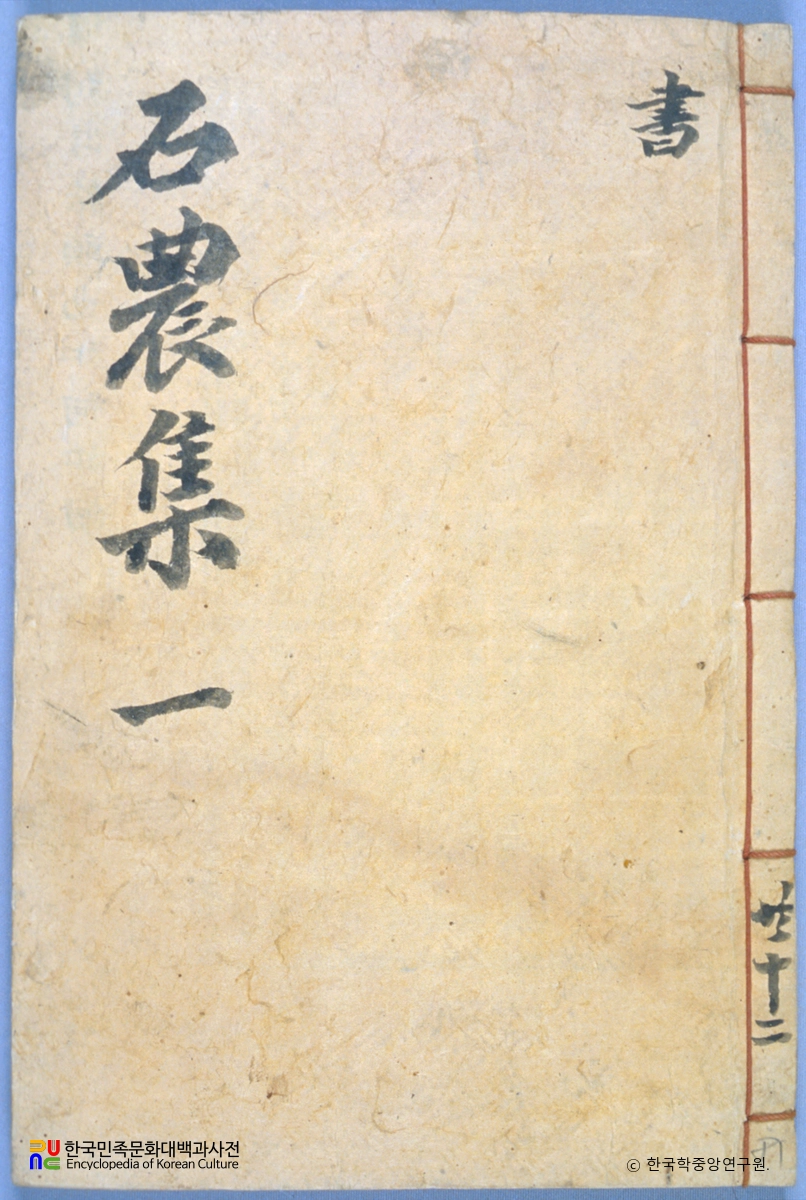 書
石農集 一
共十二
한국민족문화대백과사전
Encyclopedia of Korean Culture
ⓒ 한국학중앙연구원.